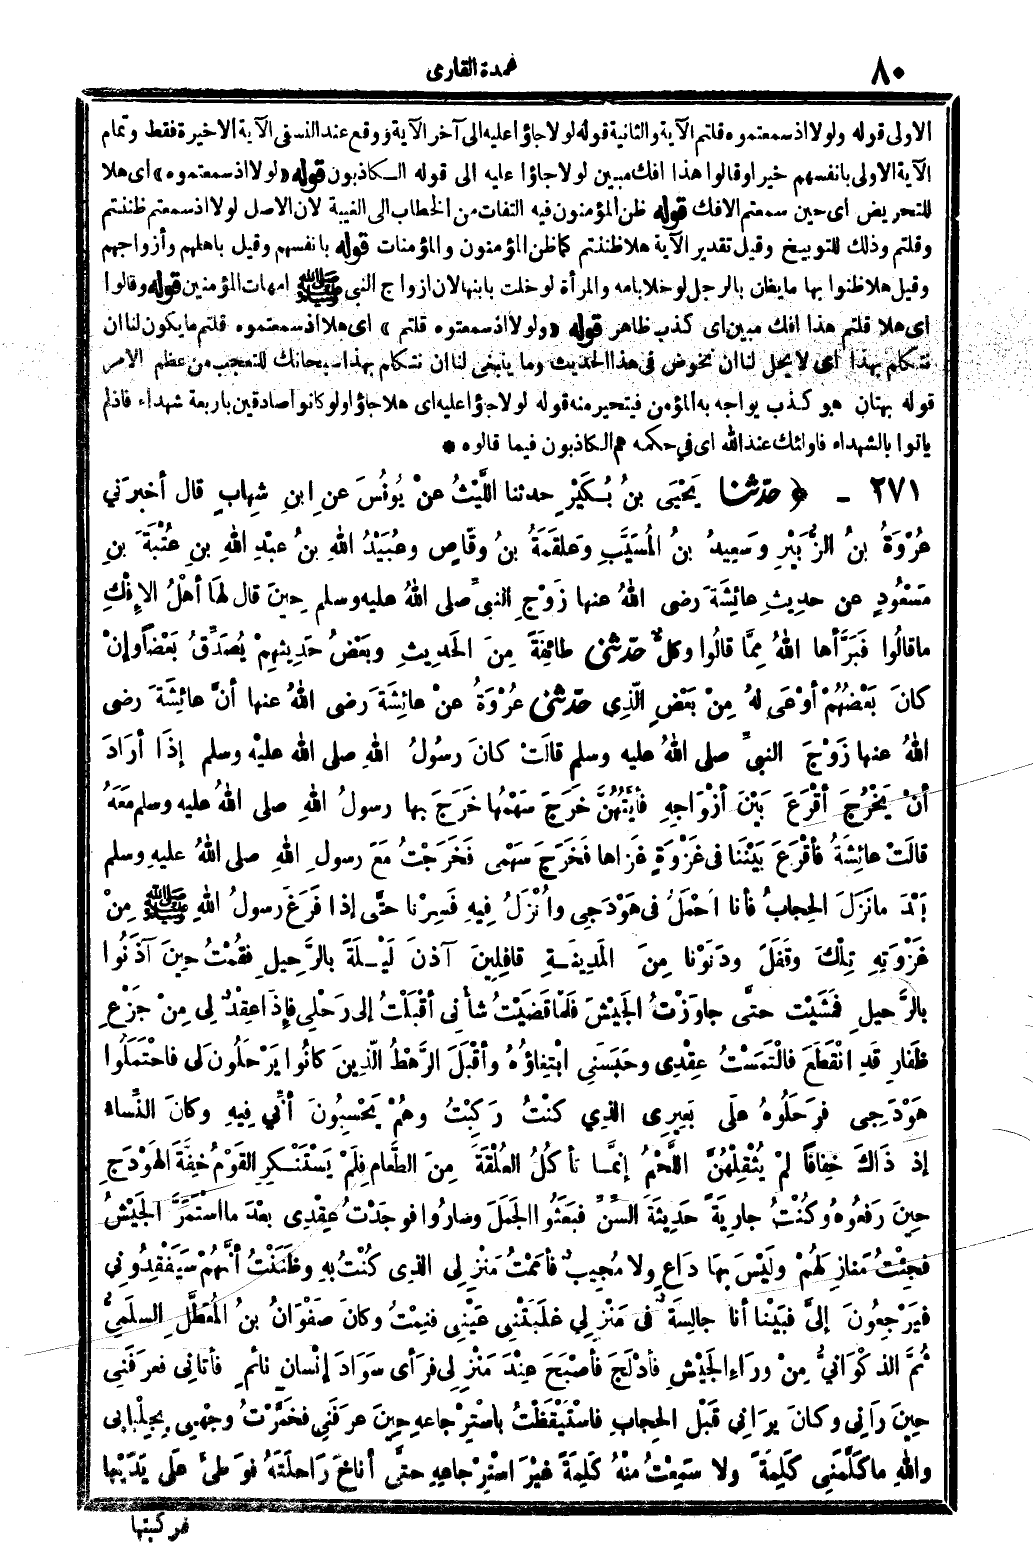 ٨٠
عمدة القارى
الاولى قوله ولولا اذ سمعتموه قلتم الآية والثانية قوله لولا جاؤا عليه الى آخر الآية ووقع عند النسفى الآية الاخيرة فقط وتمام
الآية الاولى بانفسهم خيرا وقالوا هذا افك مبين لولا جاؤا عليه الى قوله الكاذبون قوله «لولا اذ سمعتموه» اى هلا
للتحريض اى حين سمعتم الافك قوله ظن المؤمنون فيه التفات من الخطاب الى الغيبة لان الاصل لولا اذ سمعتم ظننتم
وقلتم وذلك للتوبيخ وقيل تقدير الآية هلا ظننتم كما ظن المؤمنون والمؤمنات قوله بانفسهم وقيل باهلهم وأزواجهم
وقيل هلا ظنوا بها ما يظن بالرجل لو خلا بامه والمرأة لو خلت بابنها لان ازواج النبى ﷺ امهات المؤمنين قوله وقالوا
اى هلا قلتم هذا افك مبين اى كذب ظاهر قوله «ولولا اذ سمعتوه قلتم» اى هلا اذ سمعتموه قلتم ما يكون لنا ان
نتكلم بهذا اى لا يحل لنا ان نخوض فى هذا الحديث وما ينبغى لنا ان نتكلم بهذا سبحانك للتعجب من عظم الامر
قوله بهتان هو كذب يواجه به المؤمن فيتحير منه قوله لولا جاؤا عليه اى هلا جاؤا ولو كانوا صادقين باربعة شهداء فاذلم
ياتوا بالشهداء فاولئك عند الله اى في حكمه هم الكاذبون فيما قالوه *
٢٧١ - ﴿ حدثنا يَحْيَى بنُ بُكَيْرٍ حدثنا اللَّيْثُ عنْ يُونُسَ عنِ ابنِ شِهابٍ قال أخبرَني
عُرْوَةُ بنُ الزُّبَيْرِ وسَعِيدُ بنُ المُسَيَّبِ وعَلقَمَةُ بنُ وقَّاصٍ وعُبَيْدُ اللهِ بنُ عبْدِ اللهِ بنِ عُتْبَةَ بنِ
مَسْعُودٍ عن حديثِ عائِشَةَ رضى اللهُ عنها زَوْجِ النبىِّ صلى اللهُ عليه وسلم حِينَ قال لهَا أهْلُ الإِفْكِ
ماقالُوا فَبَرَّأها اللهُ مِمَّا قالُوا وكلٌّ حدثنى طائِفَةً مِنَ الحَديثِ وبَعْضُ حَديثِهِمْ يُصَدِّقُ بَعْضاً وإنْ
كانَ بَعْضُهُمْ أوْعَى لهُ مِنْ بَعْضٍ الَّذِى حدثنى عُرْوَةُ عنْ عائِشَةَ رضى اللهُ عنها أنَّ عائِشَةَ رضى
اللهُ عنها زَوْجَ النبىِّ صلى اللهُ عليه وسلم قالَتْ كانَ رسولُ اللهِ صلى الله عليْه وسلم إذَا أرَادَ
أنْ يَخْرُجَ أقْرَعَ بَيْنَ أزْوَاجِهِ فأيَّتُهُنَّ خرَجَ سَهْمُها خَرَجَ بها رسولُ اللهِ صلى اللهُ عليه وسلم مَعَهُ
قالَتْ عائِشَةُ فأقْرَعَ بَيْنَنا فى غَزْوَةٍ غزَاها فَخَرَجَ سَهْمِى فَخَرَجْتُ مَعَ رسولِ اللهِ صلى اللهُ عليهِ وسلم
بَعْدَ ما نَزَلَ الحِجابُ فأنا أُحْمَلُ فى هَوْدَجِى وأُنْزَلُ فيهِ فَسِرْنا حتَّى إذا فَرَغَ رسولُ اللهِ ﷺ مِنْ
غَزْوَتِهِ تِلْكَ وقَفَلَ ودَنَوْنا مِنَ المَدِينَةِ قافِلِينَ آذَنَ لَيْلَةً بالرَّحِيلِ فقُمْتُ حِينَ آذَنُوا
بالرَّحِيلِ فَمَشَيْتُ حتَّى جاوَزْتُ الجَيْشَ فَلَمَّا قَضَيْتُ شأْنى أقْبَلْتُ إلى رَحْلِى فإذَا عِقْدٌ لِى مِنْ جَزْعِ
ظَفارِ قَدِ انْقَطَعَ فالْتَمَسْتُ عِقْدِى وحَبَسَنِى ابْتِغاؤُهُ وأقْبَلَ الرَّهْطُ الَّذِينَ كانُوا يَرْحَلُونَ لى فاحْتَمَلُوا
هَوْدَجِى فرَحَلُوهُ علَى بَعِيرِى الذِي كنْتُ رَكِبْتُ وهُمْ يَحْسِبُونَ أنِّي فِيهِ وكانَ النِّساءُ
إذ ذَاكَ خِفافاً لمْ يُثْقِلْهُنَّ اللَّحْمُ إنَّما تأكُلُ العُلْقَةَ مِنَ الطَّعامِ فلَمْ يَسْتَنْكِرِ القَوْمُ خِفَّةَ الهَوْدَجِ
حِينَ رَفَعُوهُ وكُنْتُ جارِيَةً حَدِيثَةَ السِّنِّ فبَعَثُوا الجَمَلَ وصارُوا فوجَدْتُ عِقْدِى بعْدَ ما اسْتَمَرَّ الجَيْشُ
فجِئْتُ مَنازِلَهُمْ ولَيْسَ بِهَا دَاعٍ ولا مُجِيبٌ فأمَمْتُ مَنْزِلِى الذى كُنْتُ بِهِ وظَنَنْتُ أنَّهُمْ سَيَفْقِدُونِي
فيَرْجِعُونَ إلىَّ فبَيْنا أنا جالِسَةٌ فى مَنْزِلِي غلَبَتْنِى عَيْنِى فنِمْتُ وكانَ صَفْوَانُ بنُ المُعَطَّلِ السلَمِىُّ
ثُمَّ الذكْوَانِيُّ مِنْ ورَاءِ الجَيْشِ فأدْلَجَ فأصْبَحَ عِنْدَ مَنْزِلِى فرَأى سوَادَ إنْسانٍ نائمٍ فأتانى فعرَفَنِى
حِينَ رَآنِى وكانَ يرَانِي قَبْلَ الحِجابِ فاسْتَيْقَظْتُ باسْتِرْجاعِهِ حِينَ عرَفَنِي فخَمَّرْتُ وجْهِى بِجِلْبابِى
واللهِ ما كَلَّمَنِى كَلِمَةً ولا سَمِعْتُ منْهُ كَلِمَةً غيْرَ اسْتِرْجاعِهِ حتَّى أناخَ رَاحلَتَهُ فوَطئَ علَى يَدَيْها
فركبتها